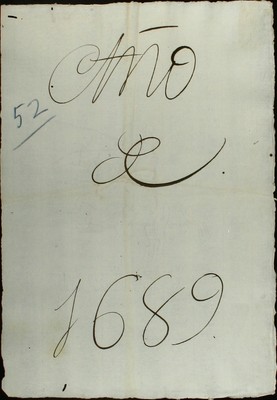 Año
52
de
1689.